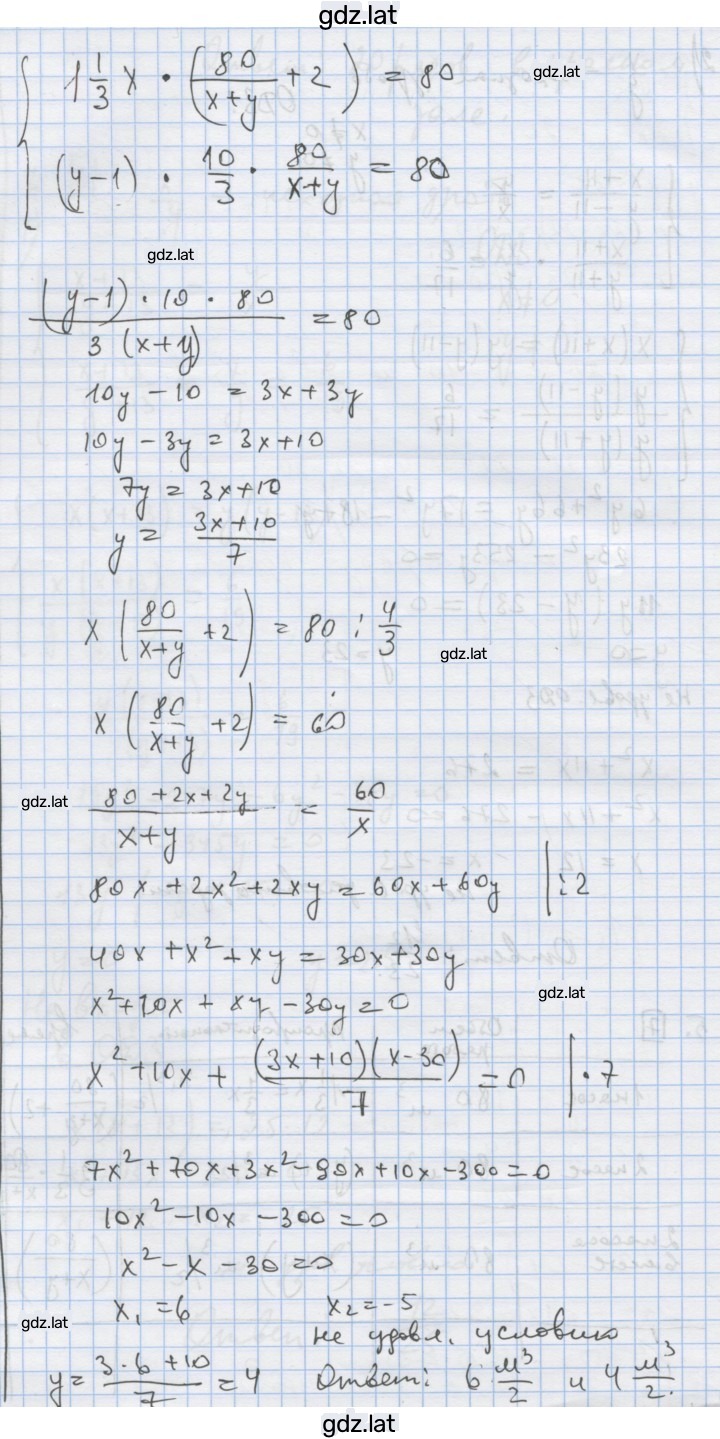 gdz.lat
1 1/3 x · (80/(x+y) + 2) = 80
gdz.lat
(y-1) · 10/3 · 80/(x+y) = 80
gdz.lat
(y-1) · 10 · 80 / 3(x+y) = 80
10y - 10 = 3x + 3y
10y - 3y = 3x + 10
7y = 3x + 10
y = (3x+10)/7
x (80/(x+y) + 2) = 80 : 4/3
gdz.lat
x (80/(x+y) + 2) = 60
gdz.lat
(80 + 2x + 2y)/(x+y) = 60/x
80x + 2x² + 2xy = 60x + 60y | :2
40x + x² + xy = 30x + 30y
gdz.lat
x² + 10x + xy - 30y = 0
x² + 10x + (3x+10)(x-30)/7 = 0 | · 7
7x² + 70x + 3x² - 90x + 10x - 300 = 0
10x² - 10x - 300 = 0
x² - x - 30 = 0
gdz.lat
x₁ = 6 x₂ = -5
не удовл. условию
y = (3·6 + 10)/7 = 4 Ответ: 6 м³/2 и 4 м³/2.
gdz.lat